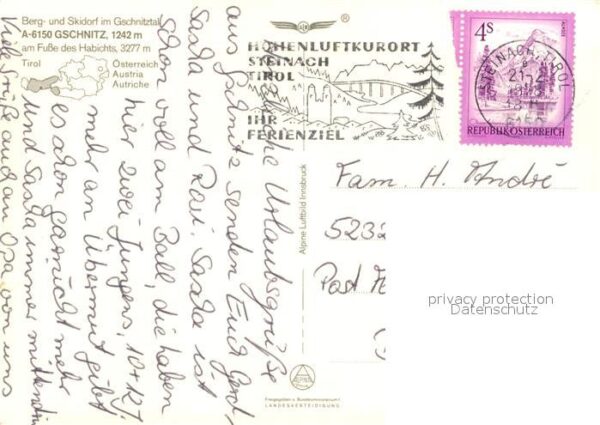 Berg- und Skidorf im Gschnitztal
A-6150 GSCHNITZ, 1242 m
am Fuße des Habichts, 3277 m
Tirol
Österreich
Austria
Autriche
HÖHENLUFTKURORT
STEINACH
TIROL
IHR
FERIENZIEL
STEINACH, TIROL
6150
4 S
REPUBLIK ÖSTERREICH
Urlaubsgrüße
aus Gschnitz senden Euch Gerd,
Sascha und Rosi. Sascha ist
schon voll am Ball, die haben
hier zwei Jungens, 10 +
mehr an Übermut gibt
es schon garnicht mehr
und Sascha immer mittendrin
Viele Grüße auch an Opa von uns
Alpine Luftbild Innsbruck
ALPINE
Freigegeben v. Bundesministerium f.
LANDESVERTEIDIGUNG
Fam. H. André
523
Post
privacy protection
Datenschutz